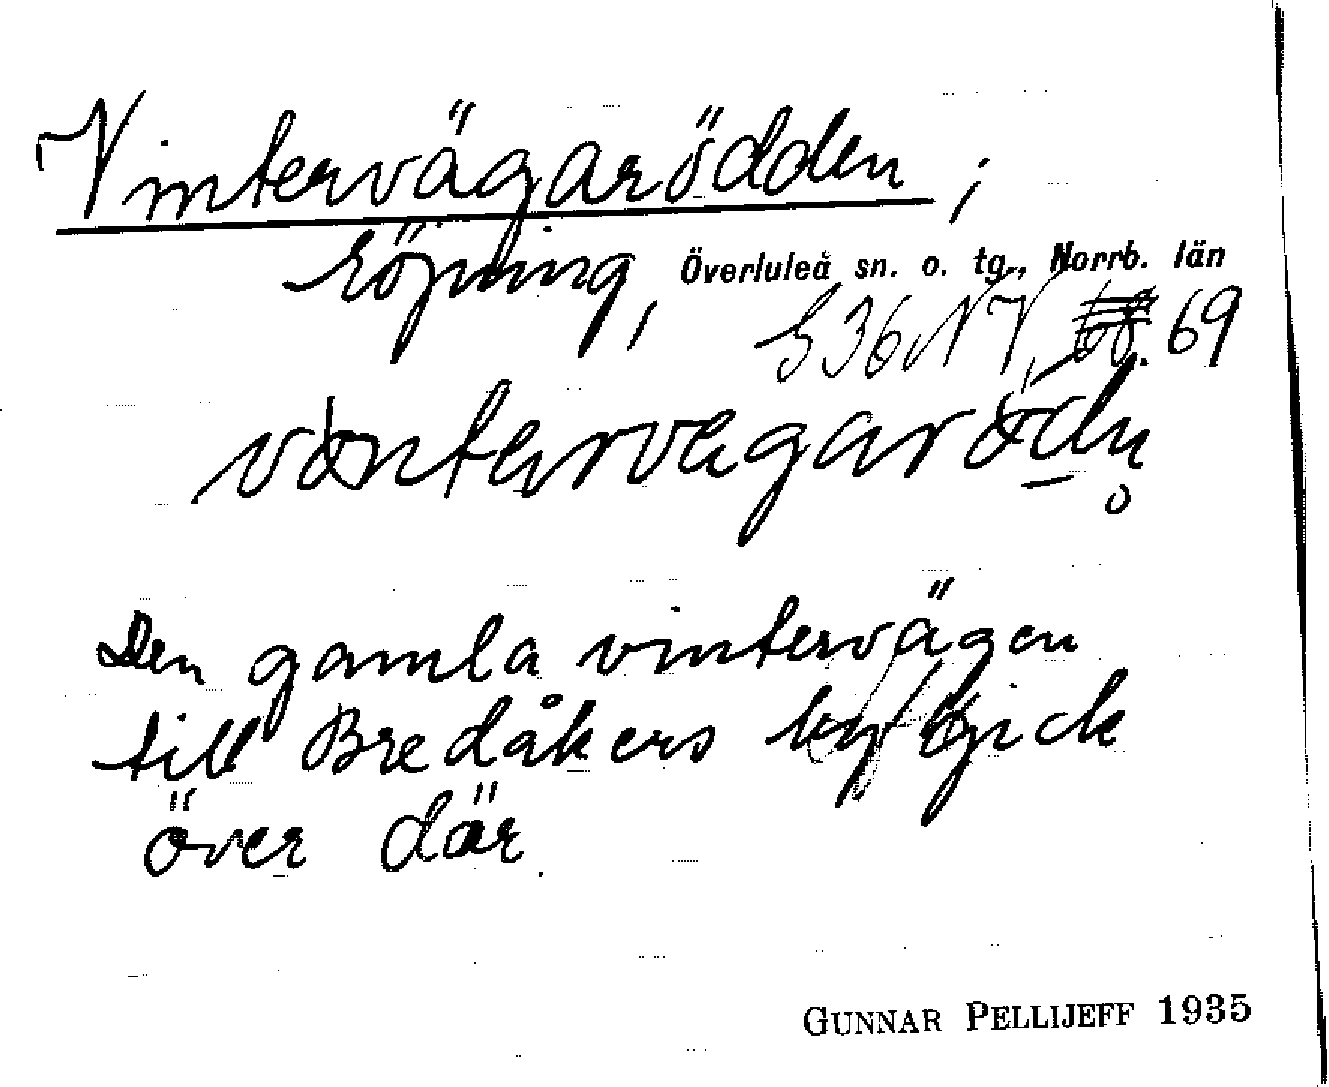 Vintervägarödden,
röjning, Överluleå sn. o. tg., Norrb. län
S 36 NV, 69
Den gamla vintervägen
till Bredåkers by gick
över där.
GUNNAR PELLIJEFF 1935